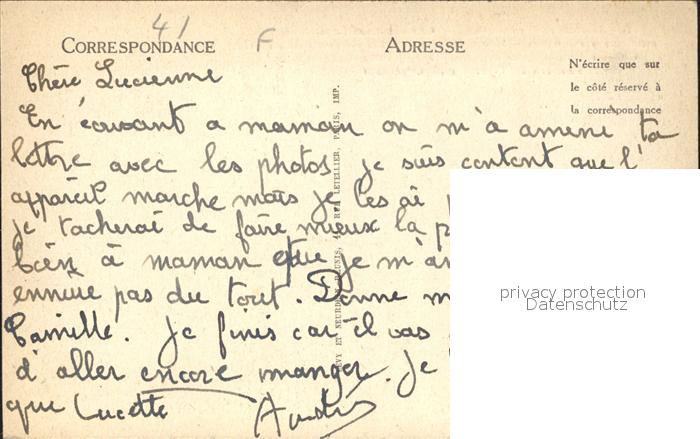 41
CORRESPONDANCE F ADRESSE
N'écrire que sur
le côté réservé à
la correspondance
Chère Lucienne
En écrivant a maman on m'a amené ta
lettre avec les photos je suis content que l'
appareit marche mais je les ai
je tacherai de faire mieux la p
bien à maman que je m'
ennuie pas du tout. Donne m
Camille. Je finis car il vas
d'aller encore manger. Je
que Lucette André
LEVY ET NEURDEIN RÉUNIS, 44, RUE LETELLIER, PARIS, IMP.
privacy protection
Datenschutz